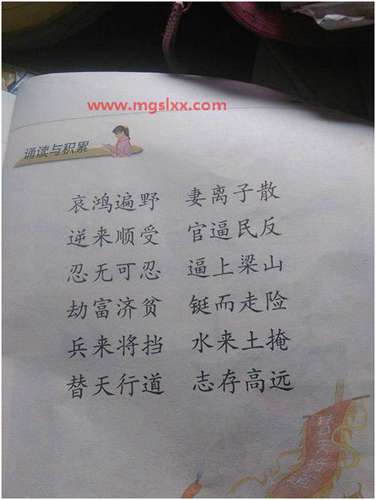 www.mgslxx.com
诵读与积累
哀鸿遍野 妻离子散
逆来顺受 官逼民反
忍无可忍 逼上梁山
劫富济贫 铤而走险
兵来将挡 水来土掩
替天行道 志存高远